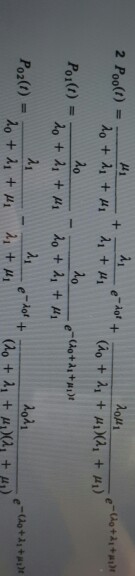 2 P₀₀(t) = μ₁/(λ₀ + λ₁ + μ₁) + λ₁/(λ₁ + μ₁) e^(−λ₀t) + λ₀μ₁/((λ₀ + λ₁ + μ₁)(λ₁ + μ₁)) e^(−(λ₀+λ₁+μ₁)t)
P₀₁(t) = λ₀/(λ₀ + λ₁ + μ₁) − λ₀/(λ₀ + λ₁ + μ₁) e^(−(λ₀+λ₁+μ₁)t)
P₀₂(t) = λ₁/(λ₀ + λ₁ + μ₁) − λ₁/(λ₁ + μ₁) e^(−λ₀t) + λ₀λ₁/((λ₀ + λ₁ + μ₁)(λ₁ + μ₁)) e^(−(λ₀+λ₁+μ₁)t)